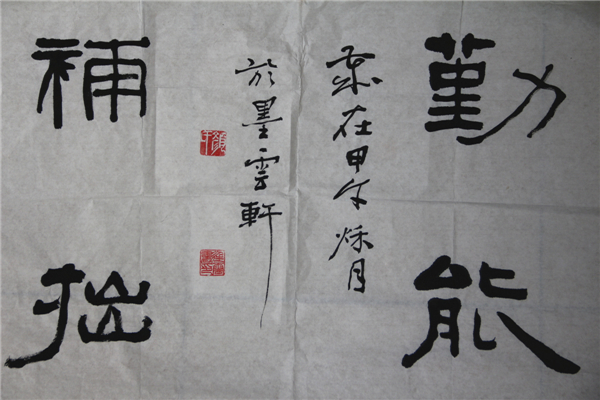 勤能
歲在甲午秋月
於墨雲軒
補拙